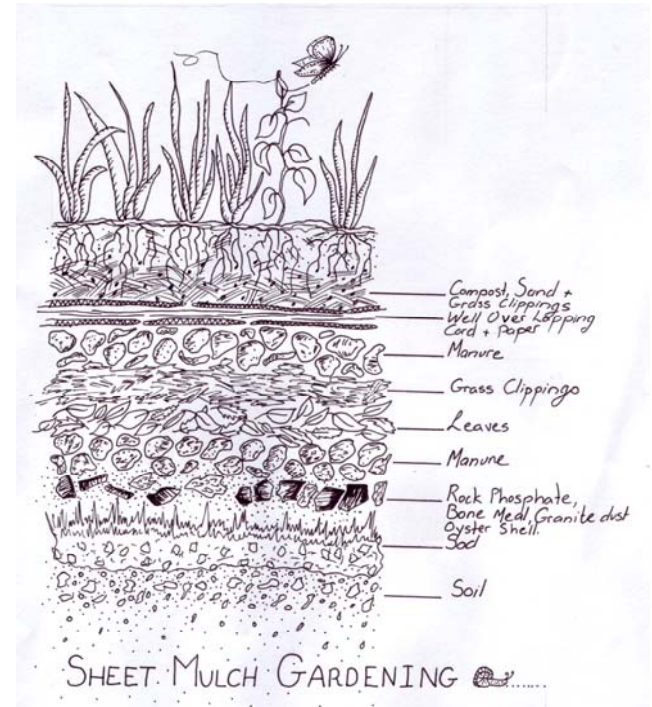 Compost, Sand +
Grass Clippings
Well Over Lapping
Card + Paper
Manure
Grass Clippings
Leaves
Manure
Rock Phosphate,
Bone Meal, Granite dust
Oyster Shell.
Sod
Soil
SHEET MULCH GARDENING